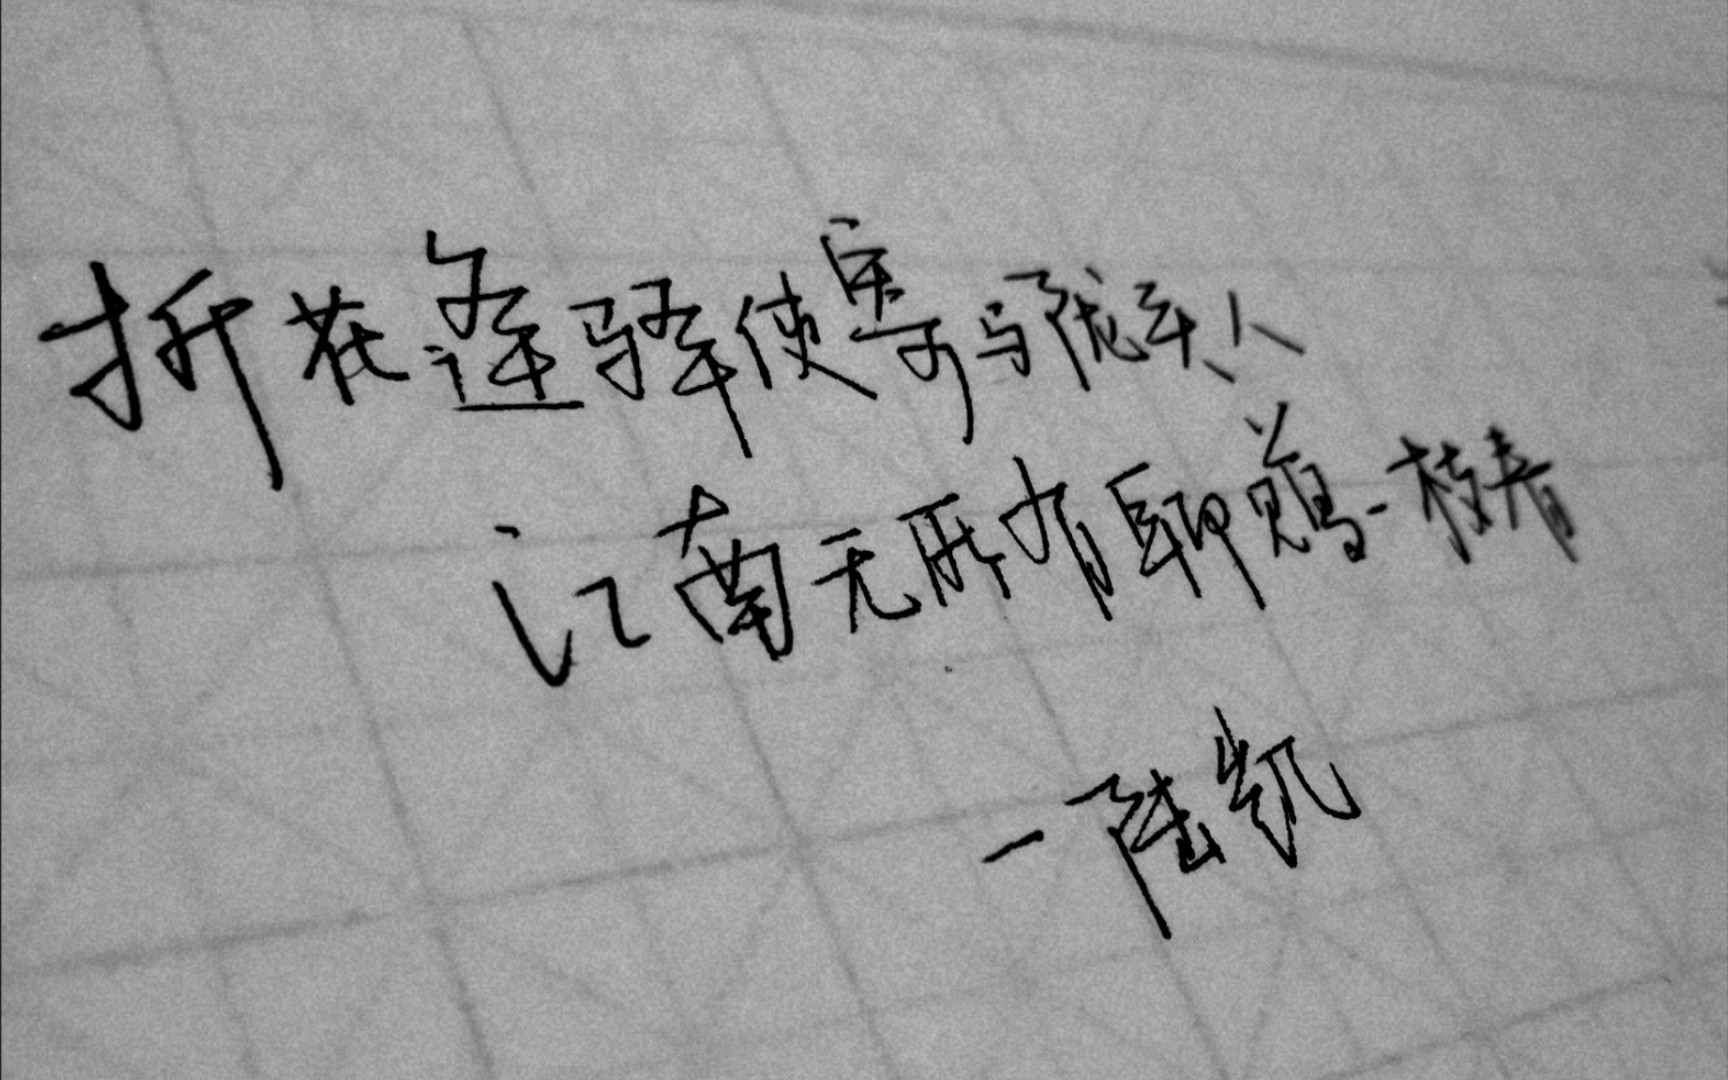 折花逢驿使寄与陇头人
江南无所有聊赠一枝春
一陆凯